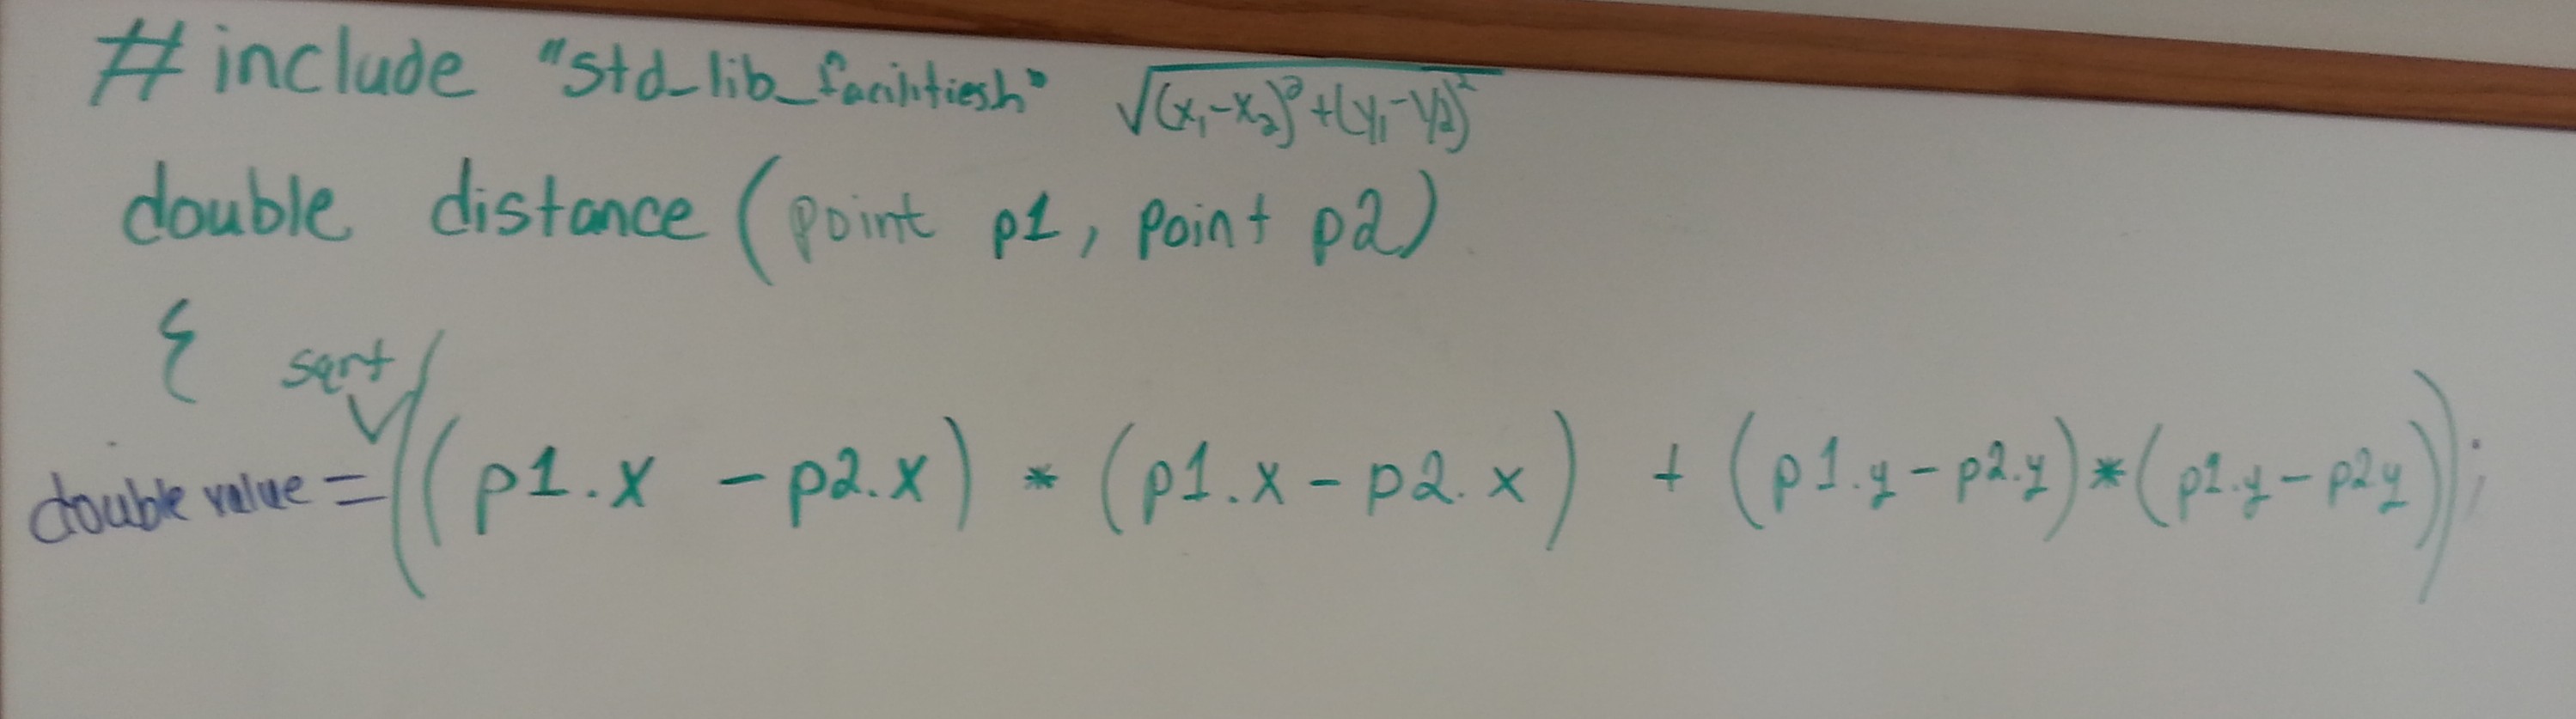 #include "std_lib_facilities.h" √(x₁-x₂)²+(y₁-y₂)²
double distance (point p1, point p2)
{ sqrt
double value = ((p1.x - p2.x) * (p1.x - p2.x) + (p1.y - p2.y)*(p1.y - p2y));